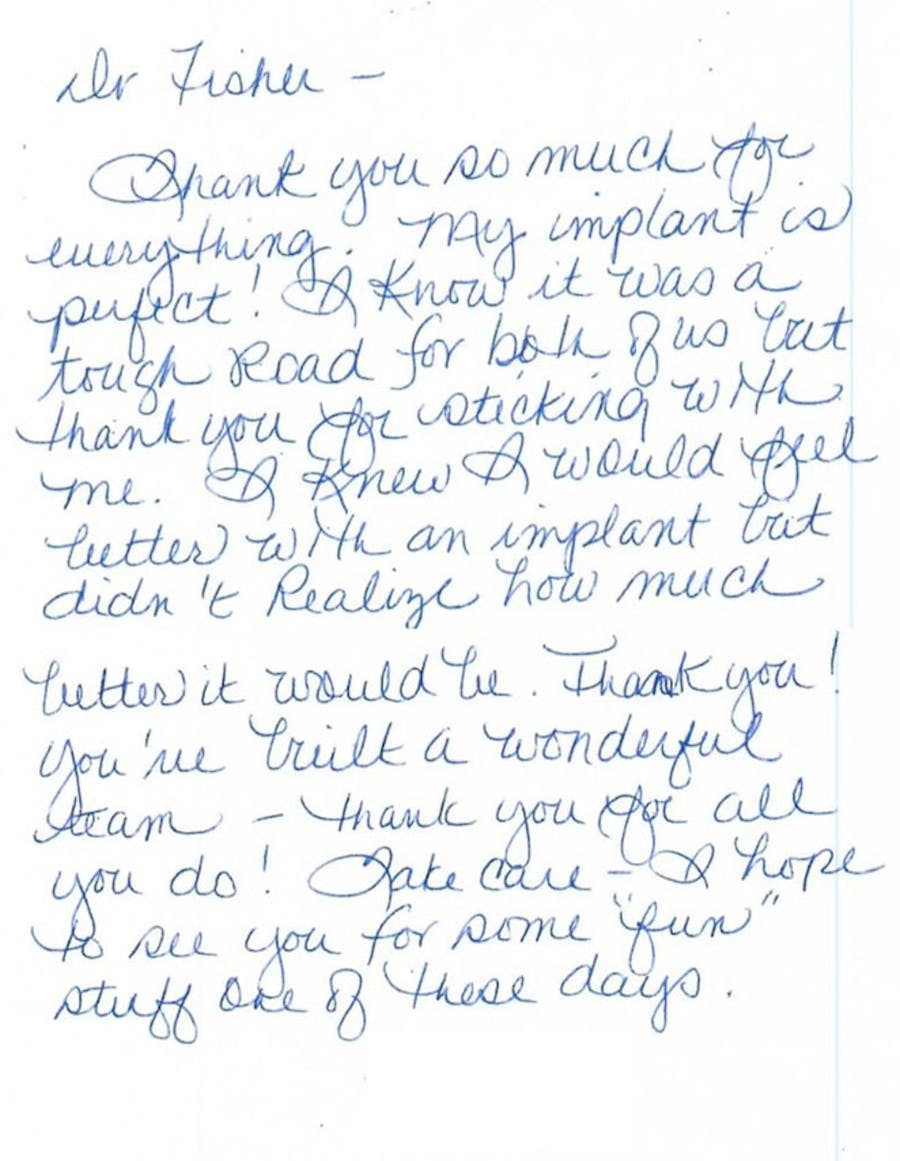 Dr Fisher –
Thank you so much for
everything. My implant is
perfect! I know it was a
tough Road for both of us but
thank you for sticking with
me. I knew I would feel
better with an implant but
didn't Realize how much
better it would be. Thank you!
You've built a wonderful
team – thank you for all
you do! Take care – I hope
to see you for some "fun"
stuff one of these days.